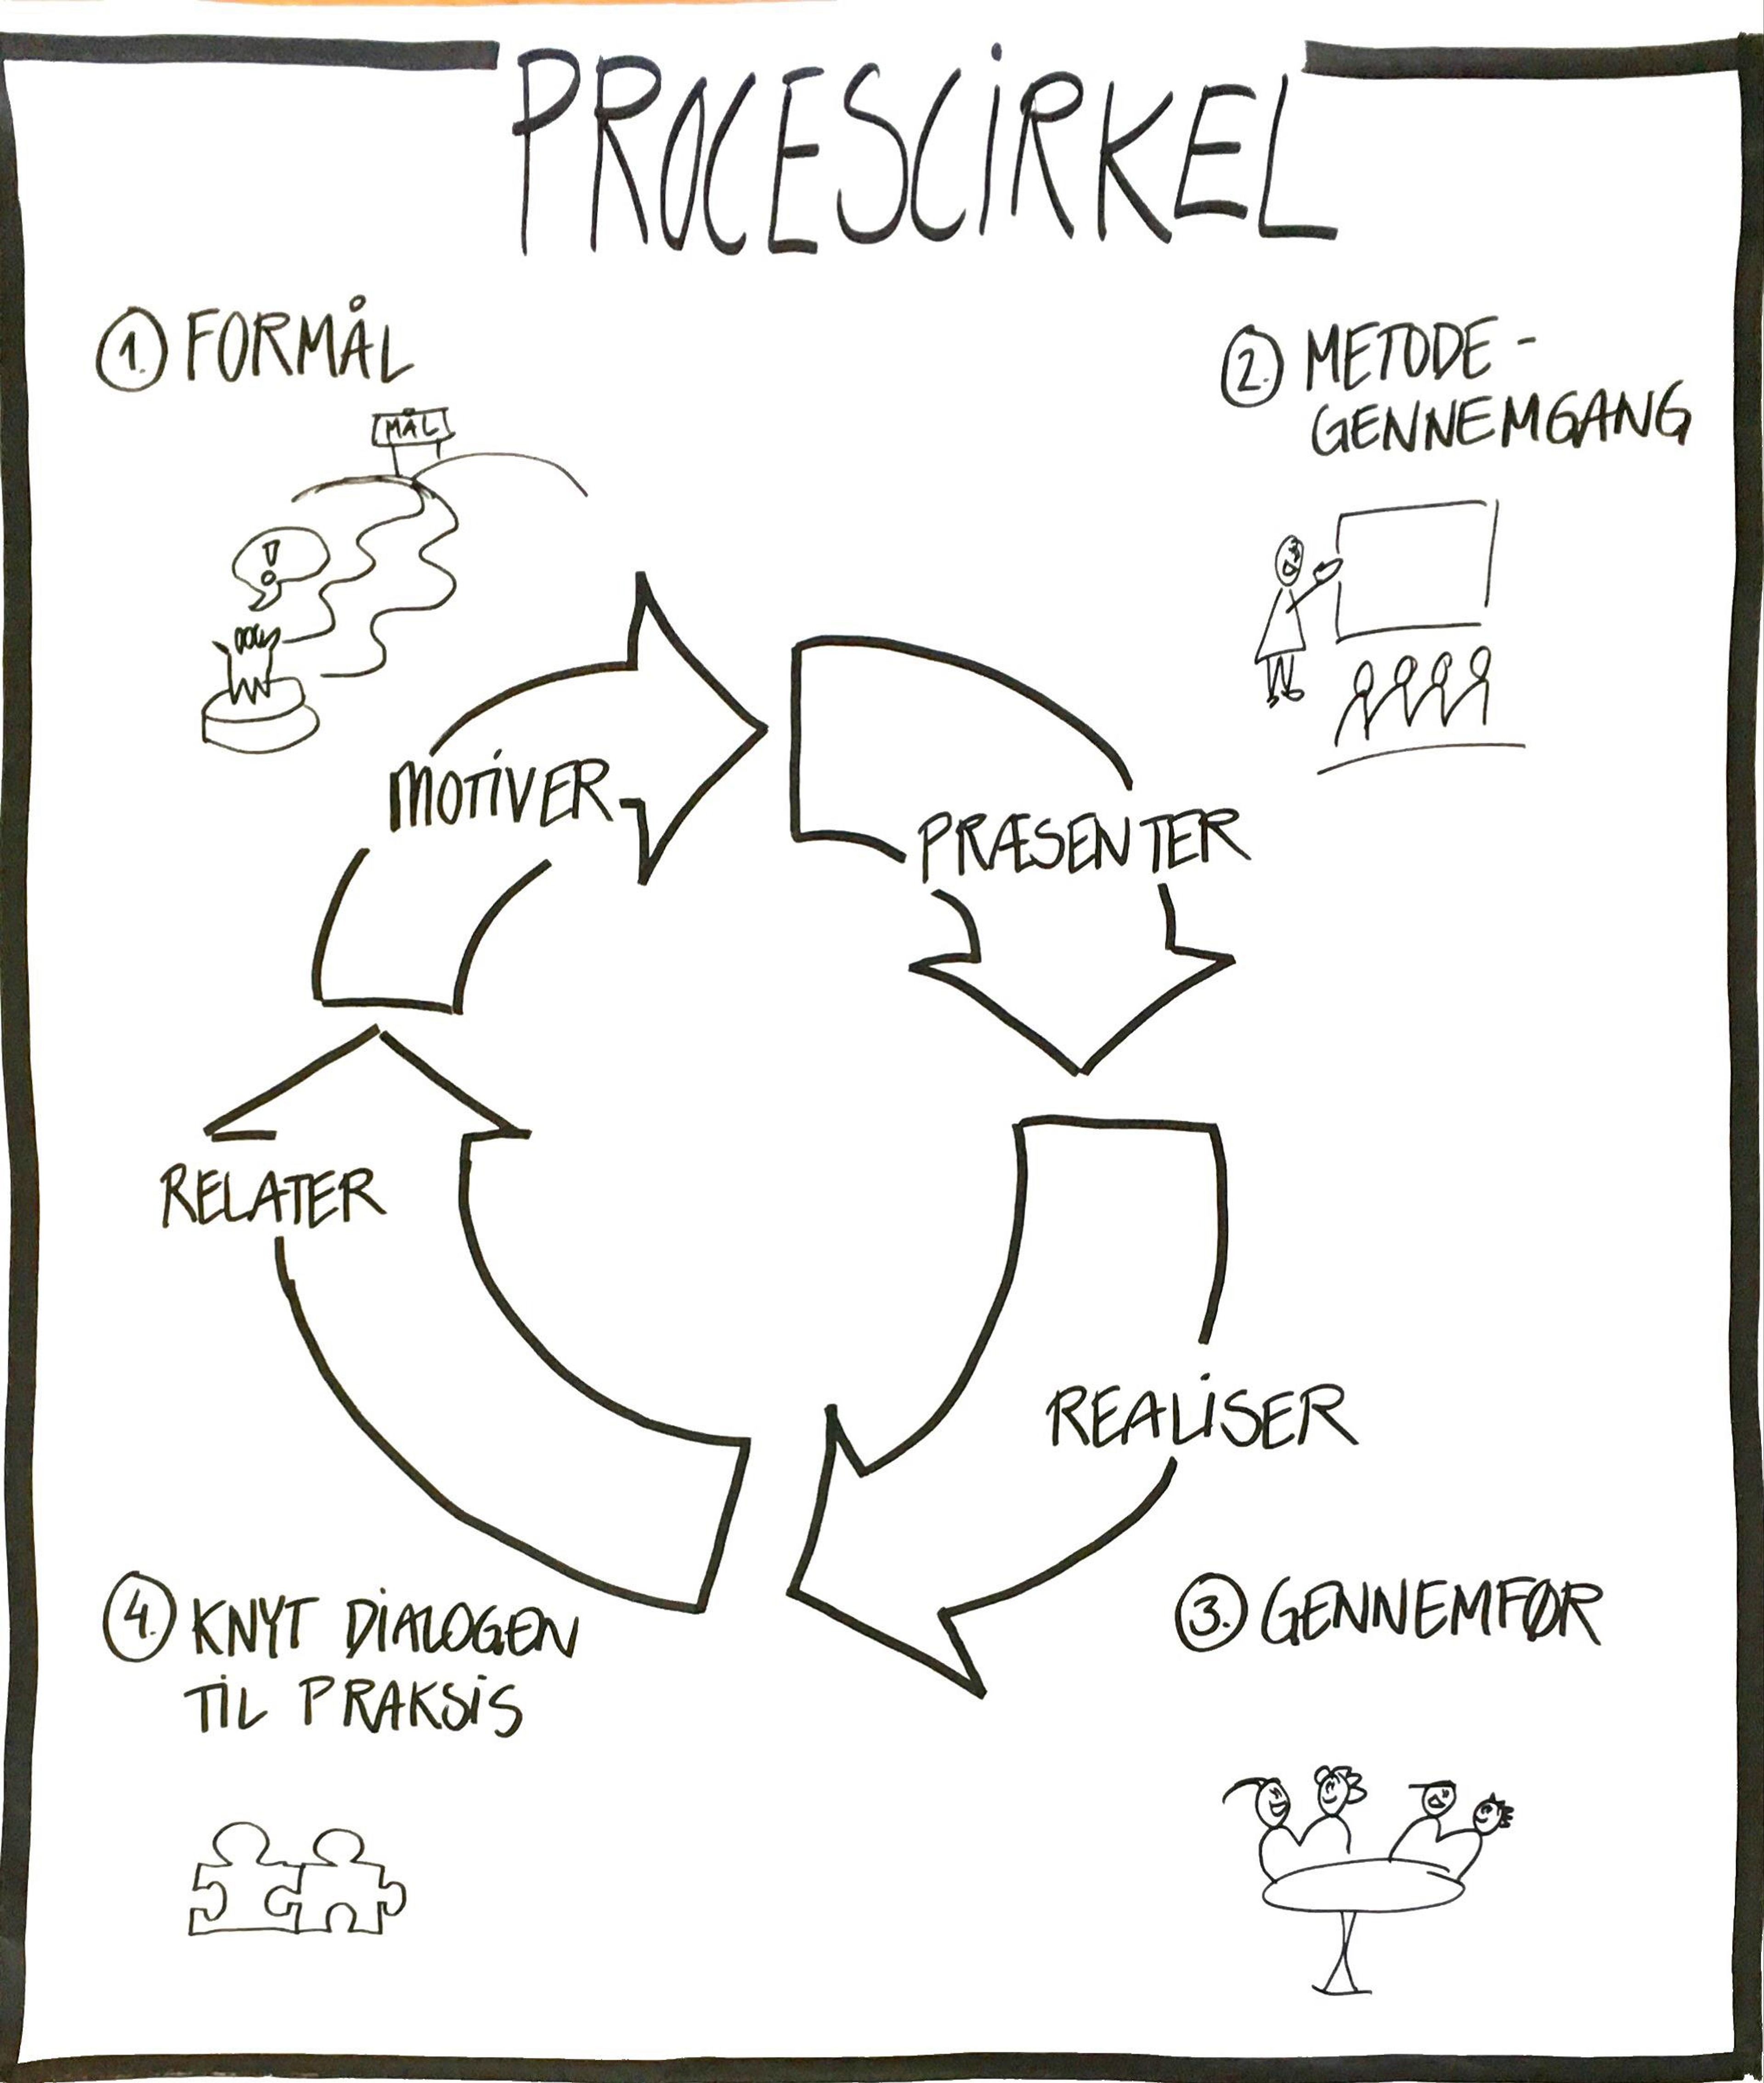 PROCESCIRKEL
1. FORMÅL
MÅL
!
2. METODE-
GENNEMGANG
MOTIVER
PRÆSENTER
RELATER
REALISER
4. KNYT DIALOGEN
TIL PRAKSIS
3. GENNEMFØR